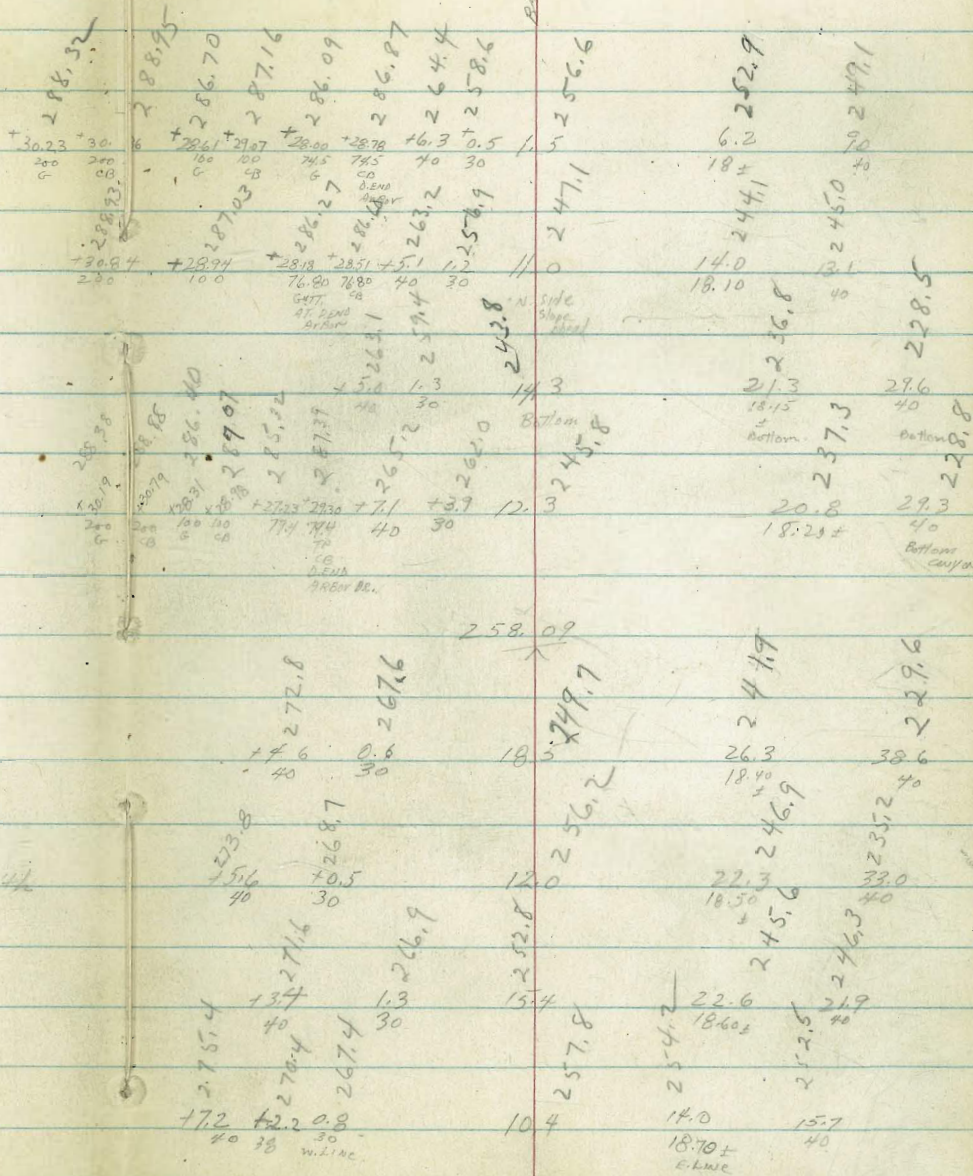 288.32 288.95 286.70 287.16 286.09 286.87 264.4 258.6 256.6 252.9 249.1
+30.23 +30. 86 +28.61 +29.07 +28.00 +28.78 +6.3 +0.5 1.5 6.2 9.0
200 200 100 100 74.5 74.5 40 30 18± 40
G CB G CB G CB
D.END
ARBOR
288.93 287.03 286.27 286.60 263.2 256.9 247.1 244.1 245.0
+30.84 +28.94 +28.18 +28.51 +5.1 1.2 11.0 14.0 13.1
200 100 76.80 76.80 40 30 18.10 40
GUTT. CB N. side
AT. D.END Slope
ARBOR
263.1 259.4 243.8 236.8 228.5
+5.0 1.3 14.3 21.3 29.6
40 30 18.15 40
Bottom ± Bottom
Bottom
288.38 288.88 286.40 287.07 285.32 287.39 265.2 262.0 245.8 237.3 228.8
+30.19 +30.79 +28.31 +28.98 +27.23 +29.30 +7.1 +3.9 12.3 20.8 29.3
200 200 100 100 77.4 77.4 40 30 18.20± 40
G CB G CB TP Bottom
CB canyon
D.END
ARBOR DR.
258.09
272.8 267.6 249.7 241.9 229.6
+4.6 0.6 18.5 26.3 38.6
40 30 18.40 40
±
273.8 268.7 256.2 246.9 235.2
+5.6 +0.5 12.0 22.3 33.0
40 30 18.50 40
±
271.6 266.9 252.8 245.6 246.3
+3.4 1.3 15.4 22.6 21.9
40 30 18.60± 40
275.4 270.4 267.4 257.8 254.2 252.5
+7.2 +2.2 0.8 10.4 14.0 15.7
40 38 30 18.70± 40
W. Line. E. Line